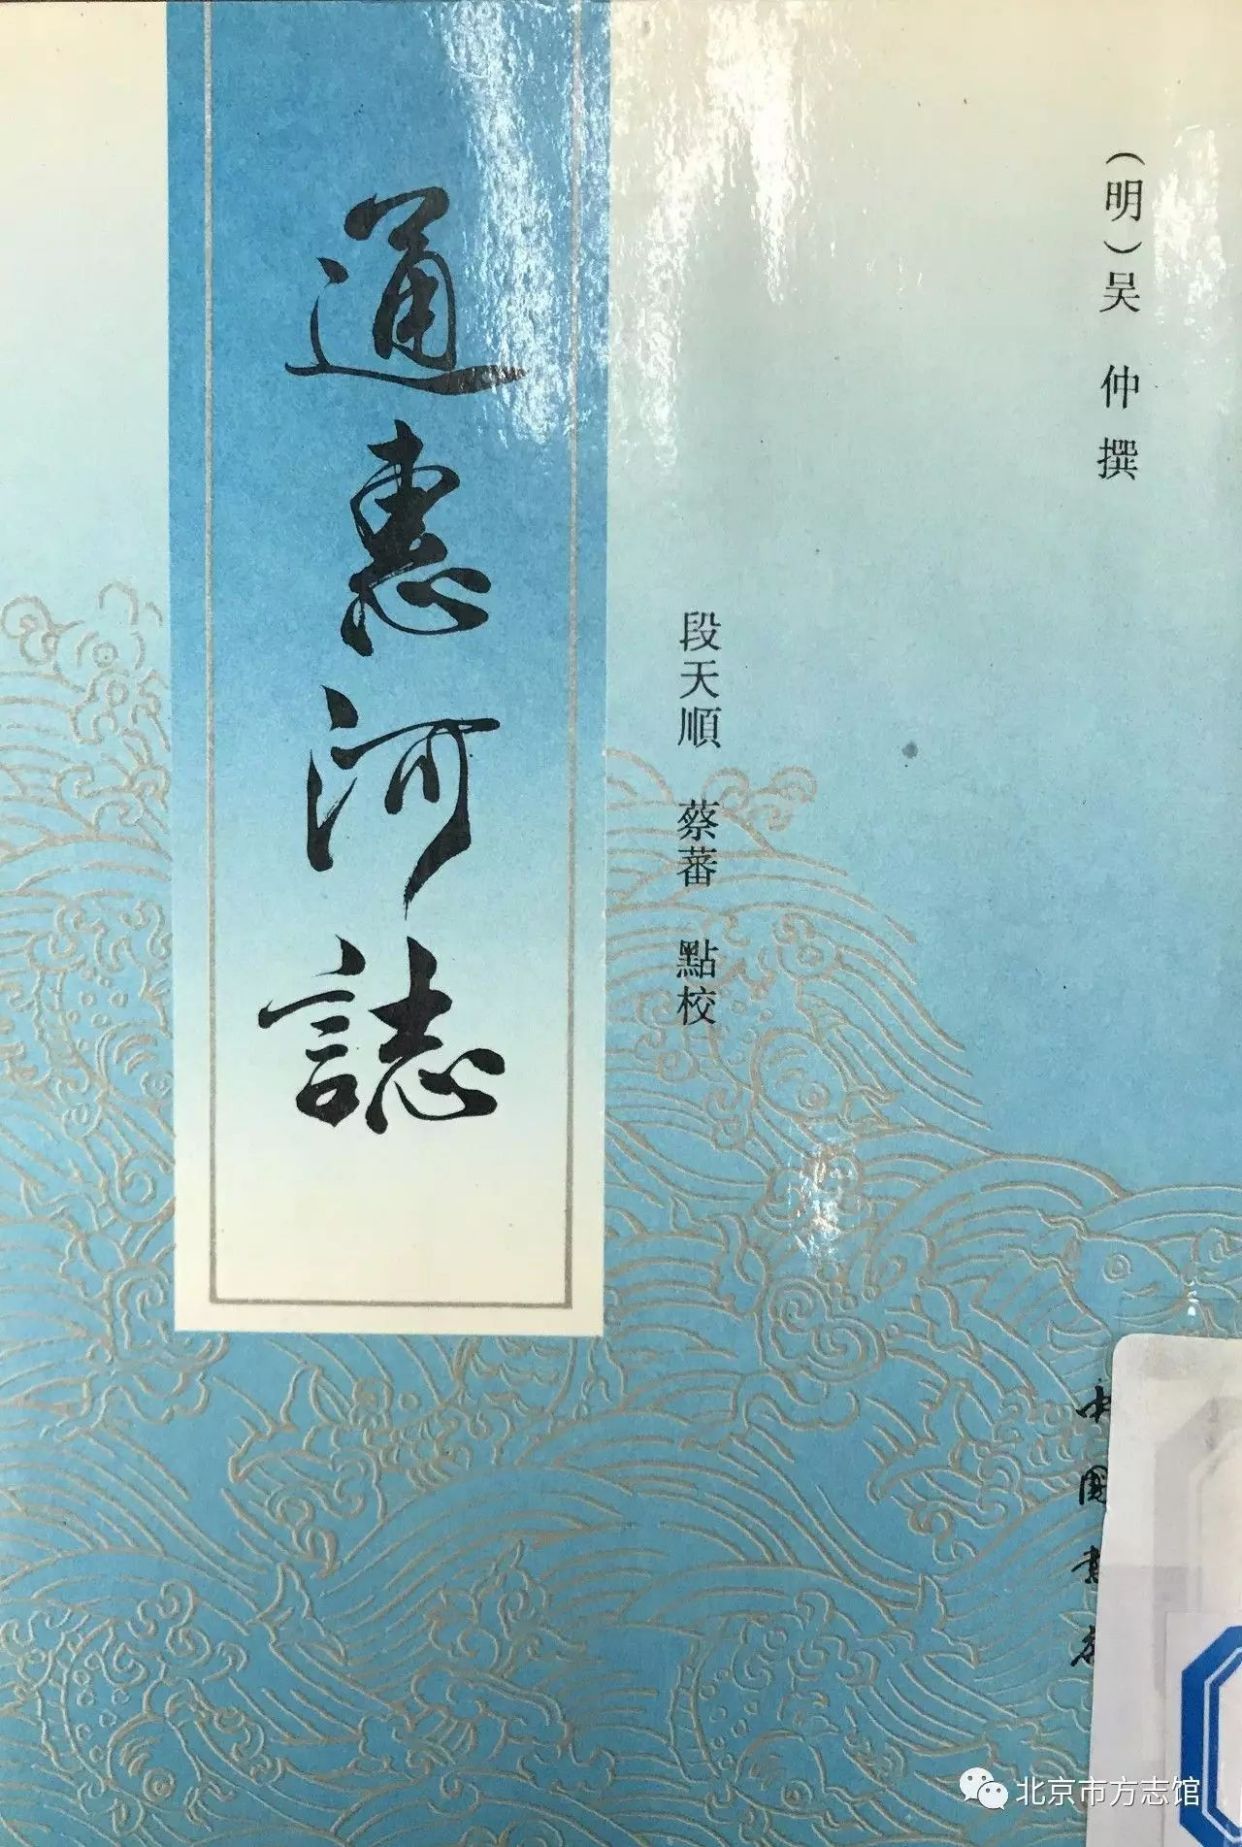 (明)吴 仲 撰
段天順 蔡蕃 點校
通惠河誌
中國書
北京市方志馆